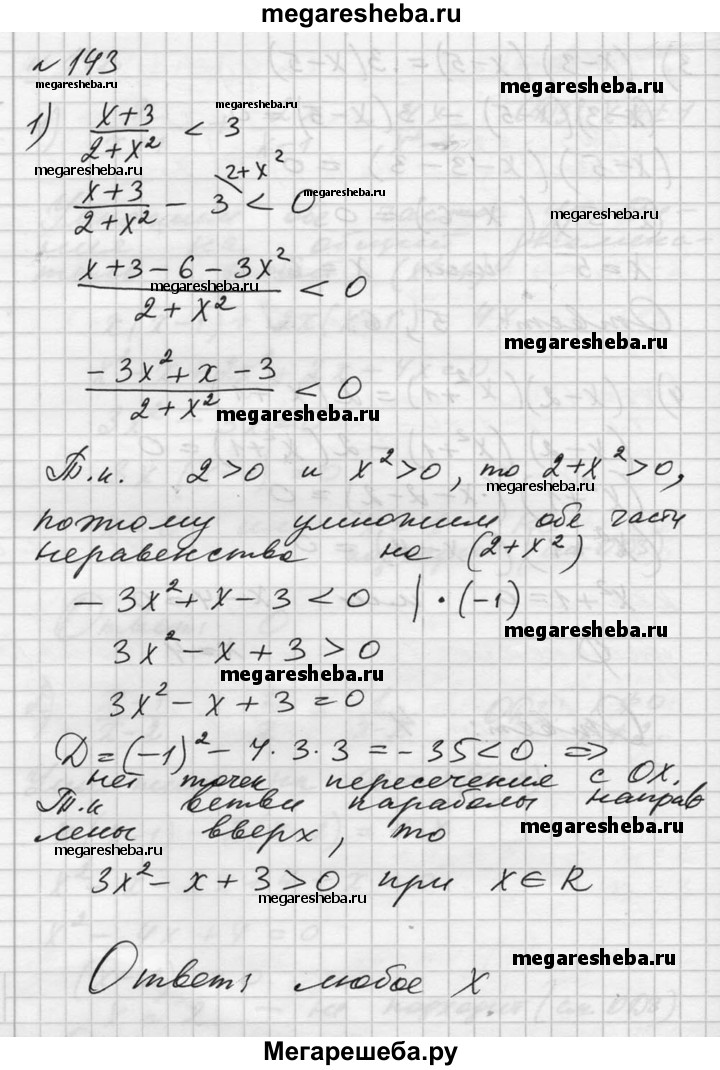 megaresheba.ru
№ 143
megaresheba.ru
megaresheba.ru
1) (x+3)/(2+x²) < 3
megaresheba.ru
megaresheba.ru
(x+3)/(2+x²) - 3 \ 2+x² < 0
megaresheba.ru
megaresheba.ru
(x+3-6-3x²)/(2+x²) < 0
megaresheba.ru
megaresheba.ru
(-3x²+x-3)/(2+x²) < 0
megaresheba.ru
Т.к. 2>0 и x²>0, то 2+x²>0,
megaresheba.ru
поэтому умножим обе части
неравенства на (2+x²)
-3x²+x-3<0 |·(-1)
megaresheba.ru
3x²-x+3>0
megaresheba.ru
3x²-x+3=0
D=(-1)²-4·3·3=-35<0 ⇒
нет точек пересечения с OX.
Т.к ветви параболы направ
лены вверх, то
megaresheba.ru
megaresheba.ru
3x²-x+3>0 при x∈R
megaresheba.ru
Ответ: любое x
megaresheba.ru
Мегарешеба.ру